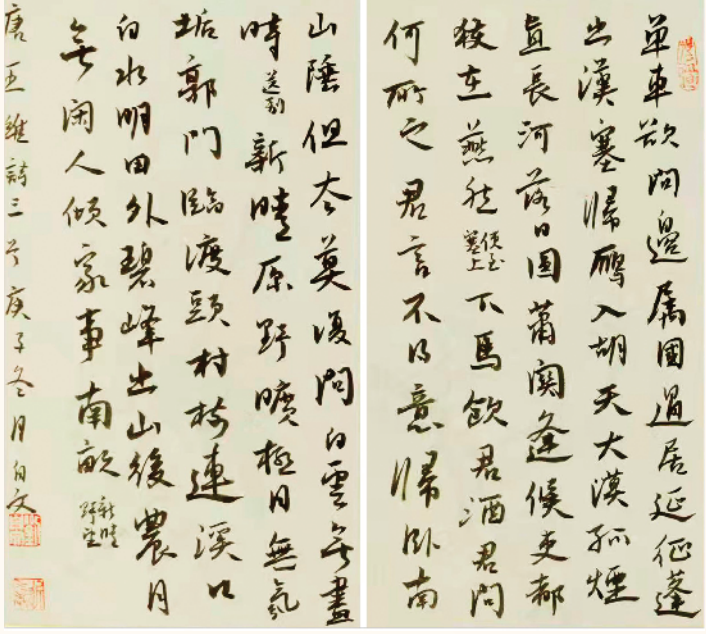 單車欲問邊屬國過居延征蓬
出漢塞歸鴈入胡天大漠孤煙
直長河落日圓蕭關逢候吏都
護在燕然使至塞上下馬飲君酒君問
何所之君言不得意歸臥南
山陲但去莫復問白雲無盡
時送別新晴原野曠極目無氛
垢郭門臨渡頭村樹連溪口
白水明田外碧峰出山後農月
無閑人傾家事南畝新晴野望
唐王維詩三首庚子冬月白文